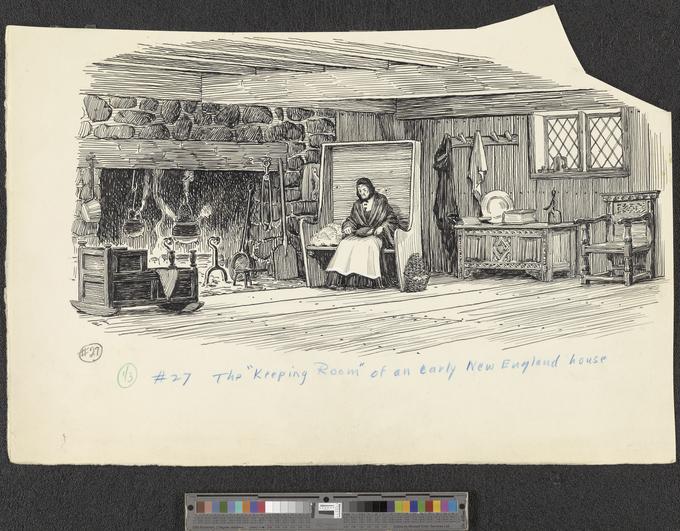 #27
1/3 #27 The "Keeping Room" of an Early New England house